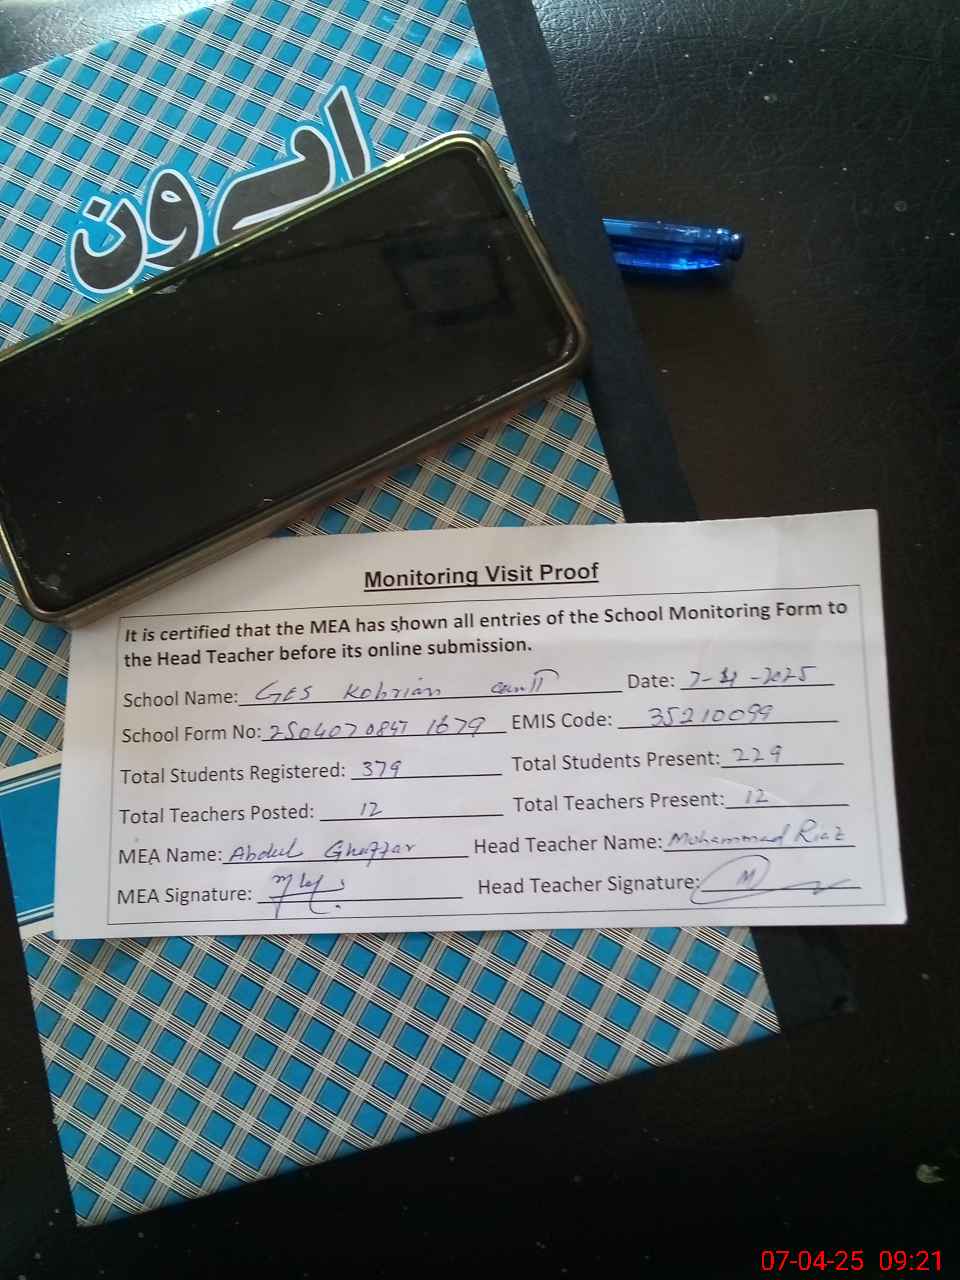 اے ون
Monitoring Visit Proof
It is certified that the MEA has shown all entries of the School Monitoring Form to
the Head Teacher before its online submission.
School Name: GES Kobrian Cantt Date: 7-4-2025
School Form No: EMIS Code: 35210099
Total Students Registered: 379 Total Students Present: 229
Total Teachers Posted: 12 Total Teachers Present: 12
MEA Name: Abdul Ghaffar Head Teacher Name: Mohammad Riaz
MEA Signature: Head Teacher Signature: M
07-04-25 09:21